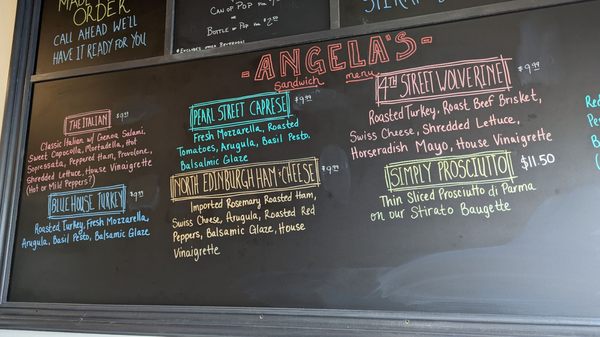 MADE
ORDER
CALL AHEAD WE'LL
HAVE IT READY FOR YOU
CAN OF POP
BOTTLE OF POP
ANGELA'S
Sandwich menu
THE ITALIAN $9.99
Classic Italian w/ Genoa Salami,
Sweet Capocolla, Mortadella, Hot
Sopressata, Peppered Ham, Provolone,
Shredded Lettuce, House Vinaigrette
(Hot or Mild Peppers?)
BLUE HOUSE TURKEY $9.99
Roasted Turkey, Fresh Mozzarella,
Arugula, Basil Pesto, Balsamic Glaze
PEARL STREET CAPRESE $9.99
Fresh Mozzarella, Roasted
Tomatoes, Arugula, Basil Pesto,
Balsalmic Glaze
NORTH EDINBURGH HAM + CHEESE $9.99
Imported Rosemary Roasted Ham,
Swiss Cheese, Arugula, Roasted Red
Peppers, Balsamic Glaze, House
Vinaigrette
4TH STREET WOLVERINE $9.99
Roasted Turkey, Roast Beef Brisket,
Swiss Cheese, Shredded Lettuce,
Horseradish Mayo, House Vinaigrette
SIMPLY PROSCIUTTO $11.50
Thin Sliced Prosciutto di Parma
on our Stirato Baugette